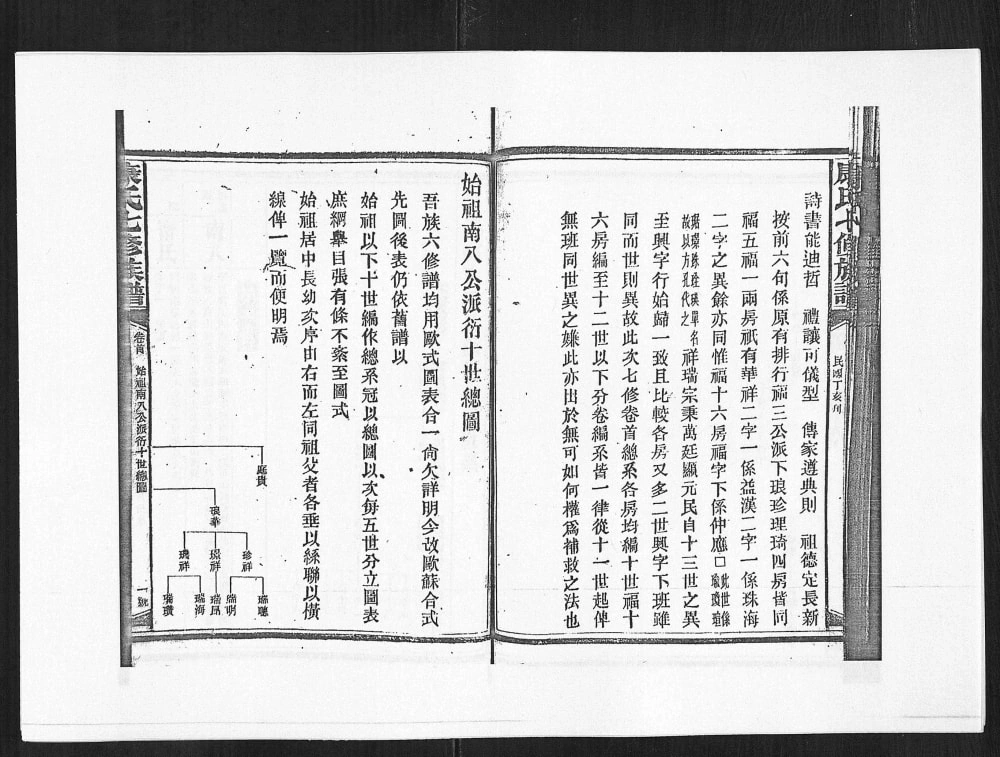 康氏七修族譜
民國丁亥刊
詩書能迪哲 禮讓可儀型 傳家遵典則 祖德定長新
按前六句係原有排行福三公派下琅珍理琦四房皆同
福五福一兩房祇有華祥二字一係益漢二字一係珠海
二字之異餘亦同惟福十六房福字下係仲應口此世係
故以方孔代之祥瑞宗秉萬廷顯元民自十三世之異
至興字行始歸一致且比較各房又多二世興字下班雖
同而世則異故此次七修卷首總系各房均編十世福十
六房編至十二世以下分卷編系皆一律從十一世起俾
無班同世異之嫌此亦出於無可如何權爲補救之法也
始祖南八公派衍十世總圖
吾族六修譜均用歐式圖表合一尙欠詳明今改歐蘇合式
先圖後表仍依舊譜以
始祖以下十世編作總系冠以總圖以次每五世分立圖表
庶綱舉目張有條不紊至圖式
始祖居中長幼次序由右而左同祖父者各垂以絲聯以橫
線俾一覽而便明焉
庭貴
琅華
珍祥
璟祥
瑞聰
瑞明
瑞昂
瑞海
瑞瓚
康氏七修族譜
卷首 始祖南八公派衍十世總圖
一號